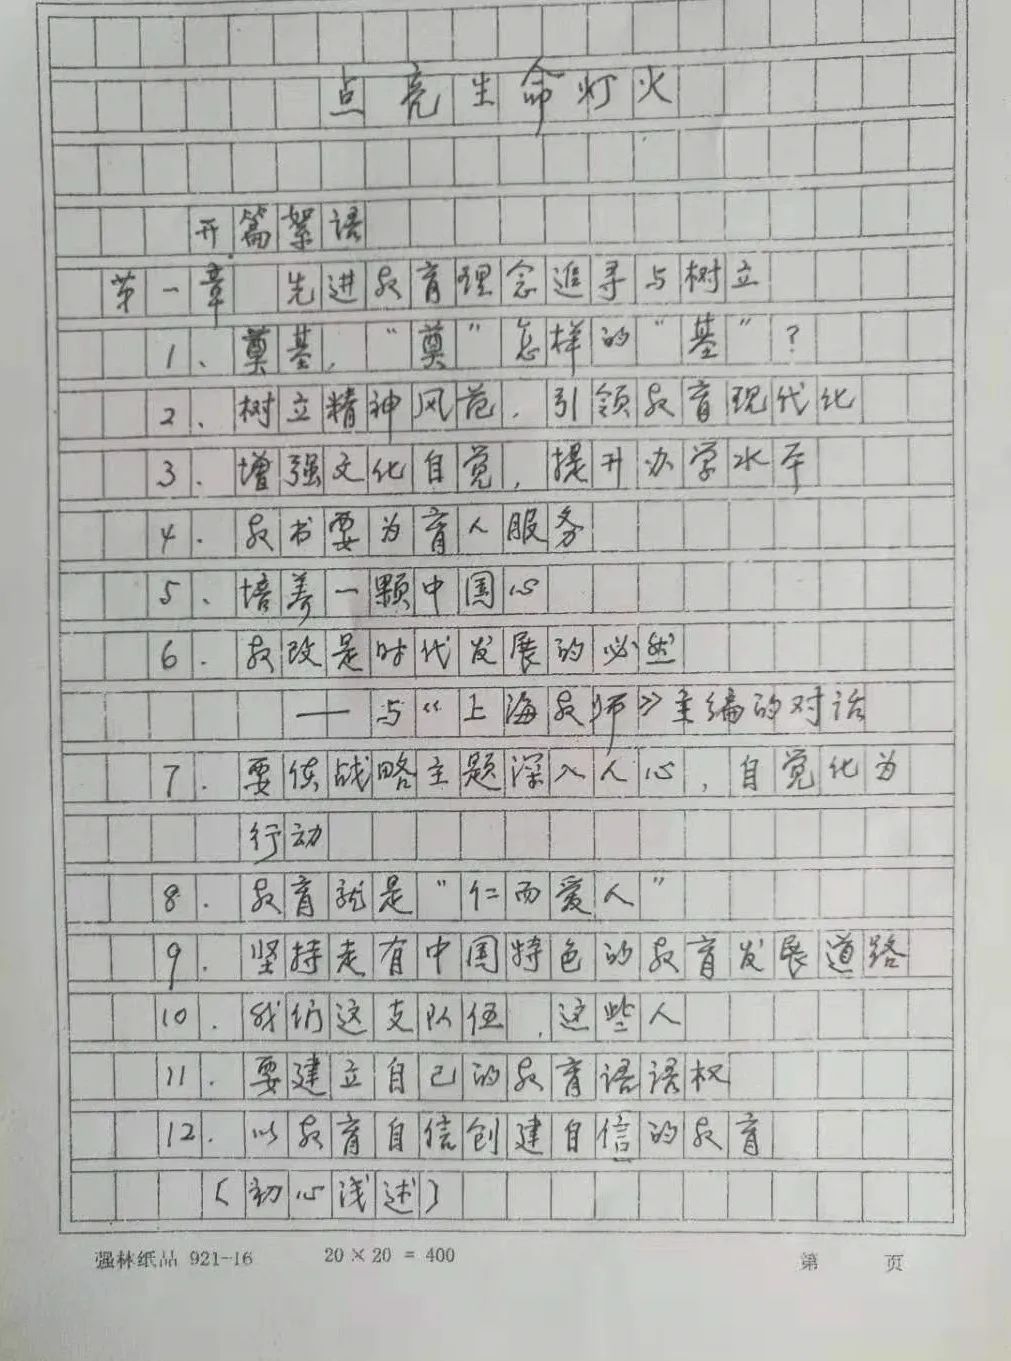 点亮生命灯火
开篇絮语
第一章 先进教育理念追寻与树立
1、奠基，“奠”怎样的“基”？
2、树立精神风范，引领教育现代化
3.增强文化自觉，提升办学水平
4.教书要为育人服务
5、培养一颗中国心
6.教改是时代发展的必然
——与《上海教师》主编的对话
7.要使战略主题深入人心，自觉化为
行动
8.教育就是“仁而爱人”
9.坚持走有中国特色的教育发展道路
10.我们这支队伍，这些人
11.要建立自己的教育话语权
12.以教育自信创建自信的教育
（初心浅述）
强林纸品 921-16 20×20=400 第 页